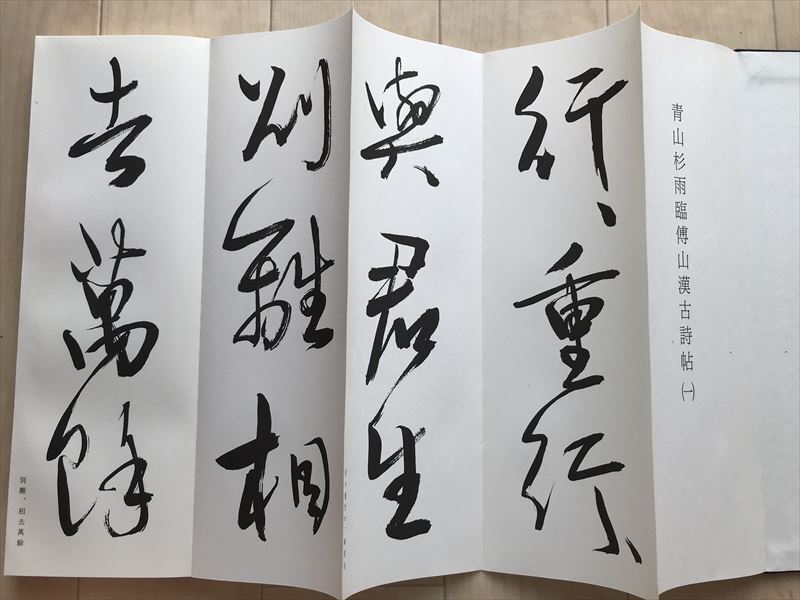 青山杉雨臨傅山漢古詩帖㈠
行、重行、
與君生
別離相
去萬餘
別離。相去萬餘